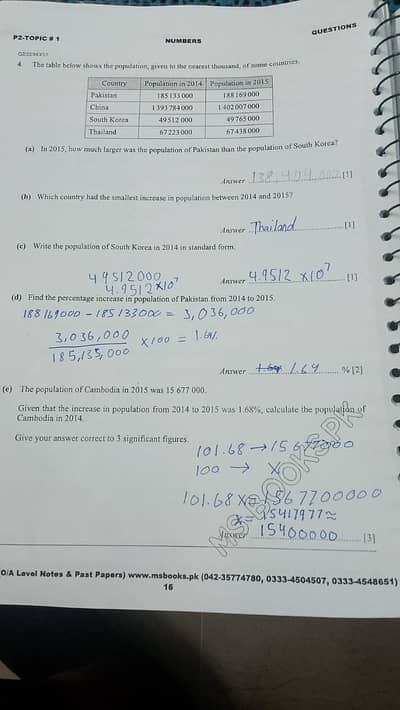 P2-TOPIC # 1
NUMBERS
QUESTIONS
4. The table below shows the population, given to the nearest thousand, of some countries.
Country Population in 2014 Population in 2015
Pakistan 185 133 000 188 169 000
China 1 393 784 000 1 402 007 000
South Korea 49 512 000 49 765 000
Thailand 67 223 000 67 438 000
(a) In 2015, how much larger was the population of Pakistan than the population of South Korea?
Answer [1]
(b) Which country had the smallest increase in population between 2014 and 2015?
Answer Thailand [1]
(c) Write the population of South Korea in 2014 in standard form.
49512000
4.9512×10⁷
Answer 4.9512 ×10⁷ [1]
(d) Find the percentage increase in population of Pakistan from 2014 to 2015.
188169000 - 185133000 = 3,036,000
3,036,000
185,133,000 × 100 = 1.64%
Answer 1.64 % [2]
(e) The population of Cambodia in 2015 was 15 677 000.
Given that the increase in population from 2014 to 2015 was 1.68%, calculate the population of
Cambodia in 2014.
Give your answer correct to 3 significant figures.
101.68 → 15677000
100 → x
101.68x = 1567700000
x = 15417977 ≈
Answer 15400000 [3]
MS BOOKS PK
O/A Level Notes & Past Papers) www.msbooks.pk (042-35774780, 0333-4504507, 0333-4548651)
16